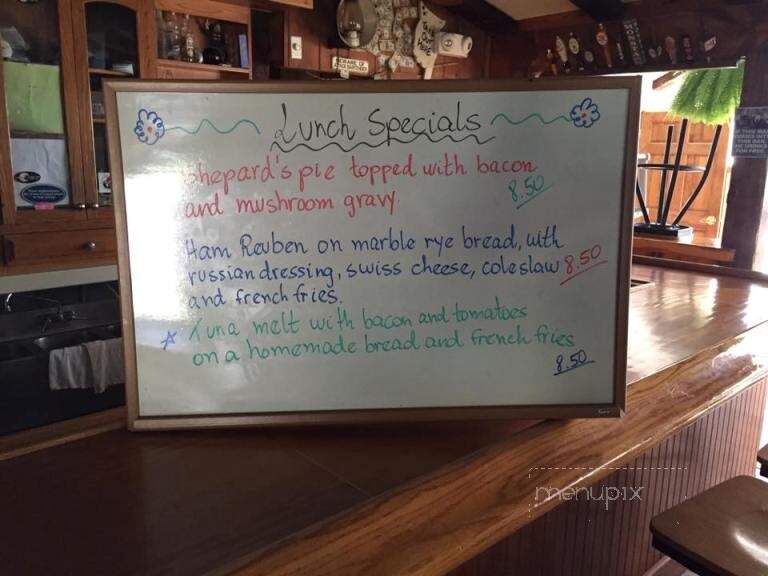 Lunch Specials
Shepard's pie topped with bacon
8.50
and mushroom gravy.
Ham Reuben on marble rye bread, with
russian dressing, swiss cheese, coleslaw 8.50
and french fries.
Tuna melt with bacon and tomatoes
on a homemade bread and french fries
8.50
menupix